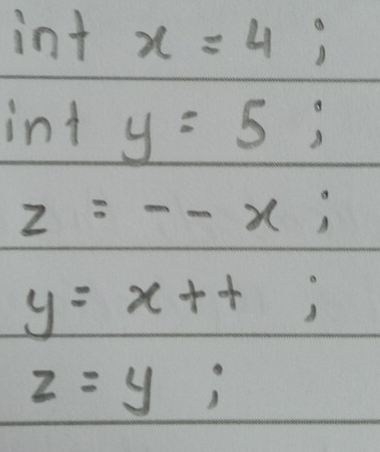 int x = 4 ;
int y = 5 ;
z = -- x ;
y = x ++ ;
z = y ;